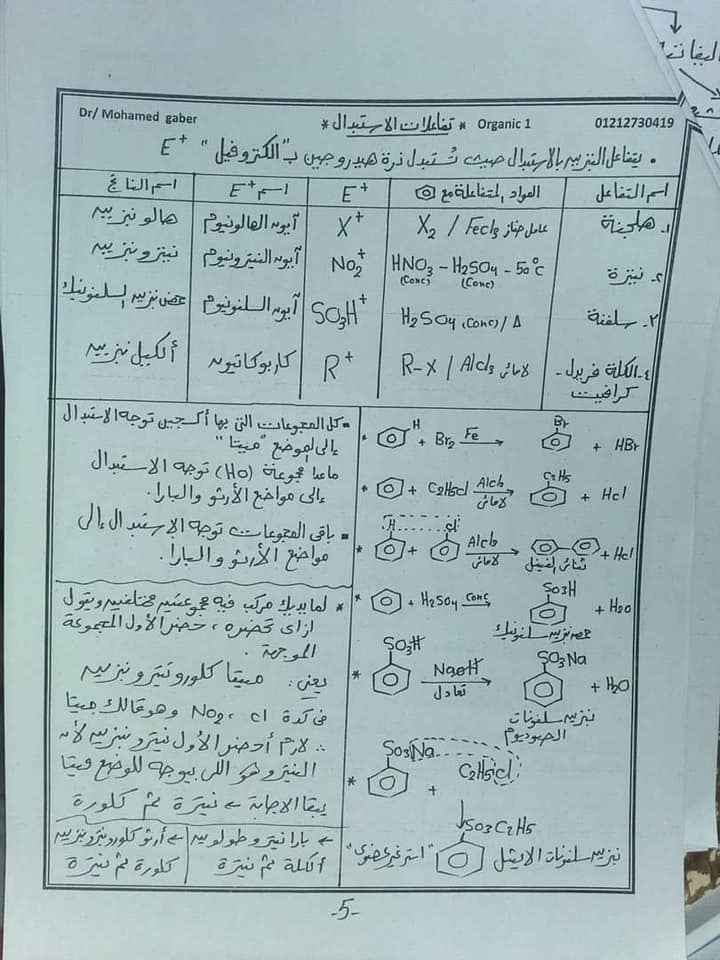 البفا
Dr/ Mohamed gaber * تفاعلات الاستبدال * Organic 1 01212730419
• يتفاعل البنزين بالاستبدال حيث تُستبدل ذرة هيدروجين بـ "الكتروفيل" E+
اسم التفاعل | المواد المتفاعلة مع | E+ | اسم E+ | اسم الناتج
١- هلجنة | X2 / Fecl3 عامل حفاز | X+ | أيون الهالونيوم | هالو بنزين
٢- نيترة | HNO3 (conc) - H2SO4 (conc) - 50°C | NO2+ | أيون النيترونيوم | نيترو بنزين
٣- سلفنة | H2SO4 (conc) / Δ | SO3H+ | أيون السلفونيوم | حمض بنزين السلفونيك
٤- الكلة فريدل - كرافيت | R-X / Alcl3 لامائى | R+ | كاربوكاتيون | ألكيل بنزين
* H + Br2 Fe → Br + HBr
* + C2H5cl Alcl3 لامائى → C2H5 + Hcl
* H + cl Alcl3 لامائى → ثنائى الفينيل + Hcl
* + H2SO4 conc → SO3H + H2O
حمض بنزين سلفونيك
* SO3H NaOH تعادل → SO3Na + H2O
بنزين سلفونات الصوديوم
* SO3Na + C2H5cl
↓ SO3C2H5
بنزين سلفونات الايثيل "استر غير عضوى"
• كل المجموعات التى بها أكسجين توجه الاستبدال
إلى الموضع "ميتا"
ماعدا مجموعة (HO) توجه الاستبدال
إلى مواضع الأرثو والبارا.
• باقى المجموعات توجه الاستبدال إلى
مواضع الأرثو والبارا.
* لما يديك مركب فيه مجموعتين مختلفين ويقول
ازاى تحضره ، حضر الأول المجموعة
الموجهة.
يعنى: ميتا كلورو نيترو بنزين
فى كدة NO2 ، cl وهو قالك ميتا
∴ لازم أحضر الأول نيترو بنزين لأن
النيترو هو اللى بيوجه للوضع ميتا
يبقا الاجابة ← نيترة ثم كلورة
← بارا نيترو طولوين
ألكلة ثم نيترة
← أرثو كلورو نيترو بنزين
كلورة ثم نيترة
-5-